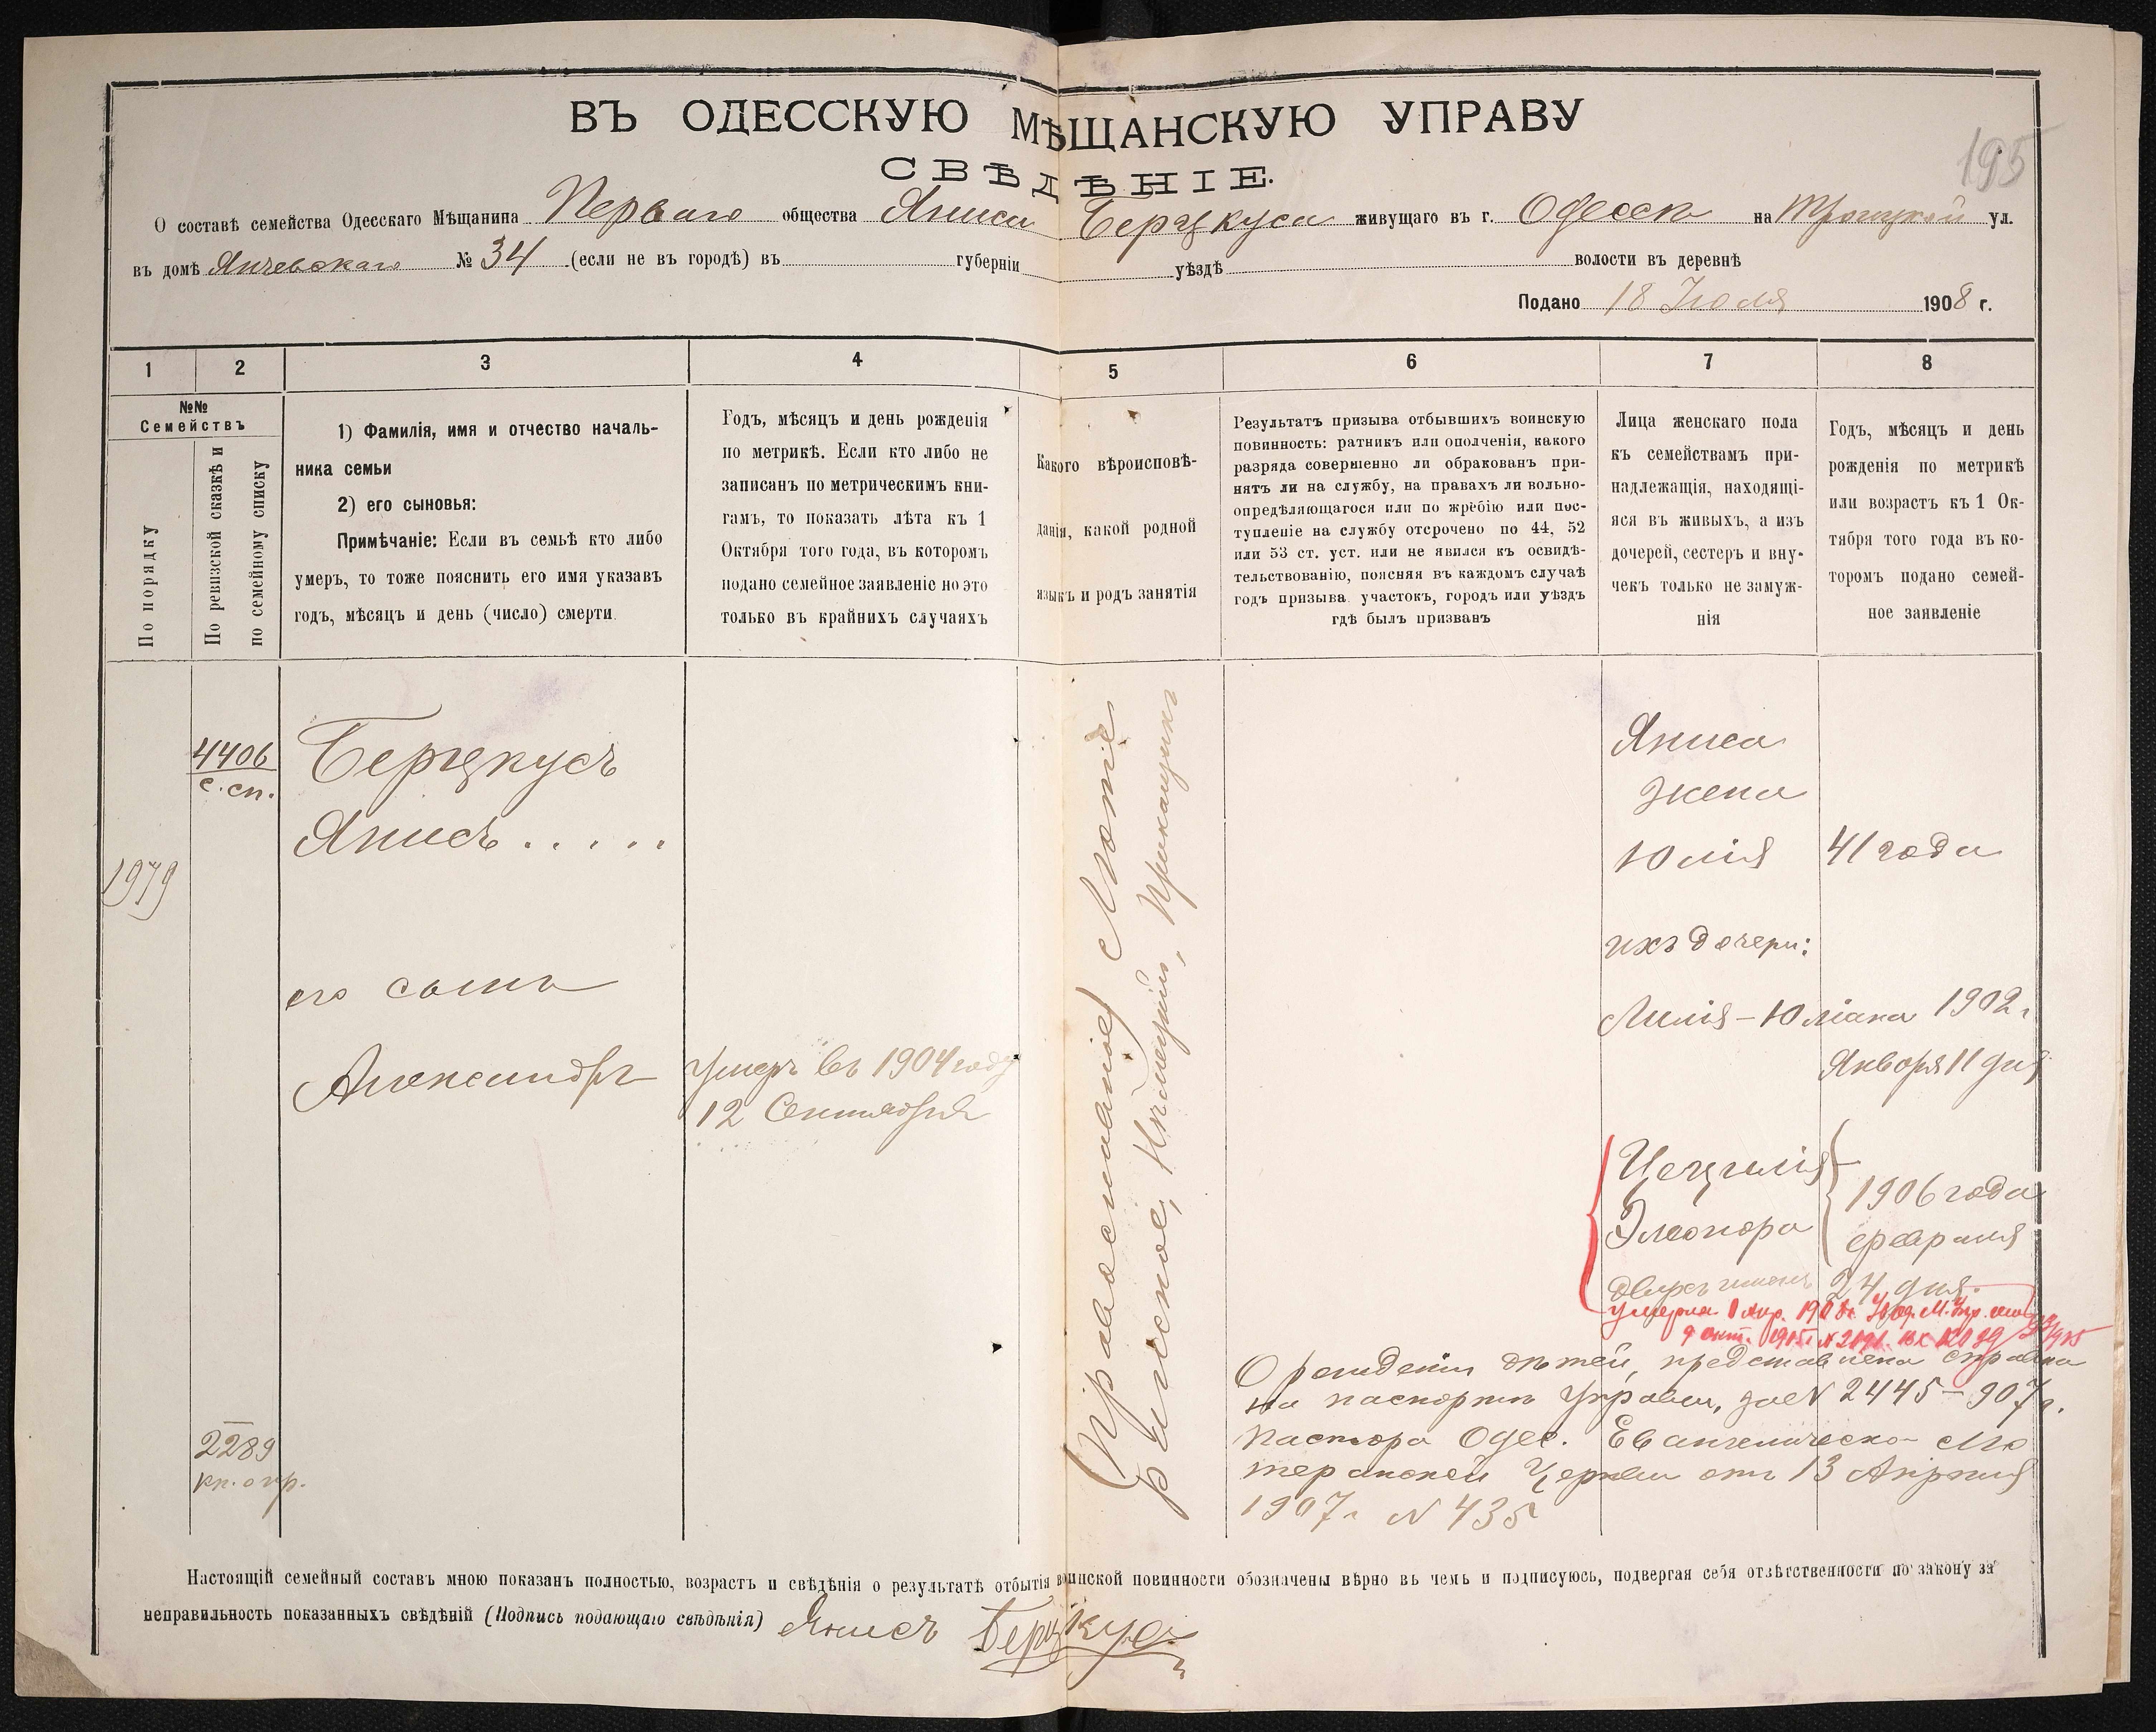 195
ВЪ ОДЕССКУЮ МѢЩАНСКУЮ УПРАВУ
СВѢДѢНІЕ.
О составѣ семейства Одесскаго Мѣщанина Перваго общества Яниса Берцкуса живущаго въ г. Одессѣ на Троицкой ул.
въ домѣ Янчевскаго № 34 (если не въ городѣ) въ губерніи уѣздѣ волости въ деревнѣ
Подано 18 Іюля 1908 г.
1 2 3 4 5 6 7 8
№№
Семействъ
По порядку
По ревизской сказкѣ и
по семейному списку
1) Фамилія, имя и отчество началь-
ника семьи
2) его сыновья:
Примѣчаніе: Если въ семьѣ кто либо
умеръ, то тоже пояснить его имя указавъ
годъ, мѣсяцъ и день (число) смерти
Годъ, мѣсяцъ и день рожденія
по метрикѣ. Если кто либо не
записанъ по метрическимъ кни-
гамъ, то показать лѣта къ 1
Октября того года, въ которомъ
подано семейное заявленіе но это
только въ крайнихъ случаяхъ
Какого вѣроисповѣ-
данія, какой родной
языкъ и родъ занятія
Результатъ призыва отбывшихъ воинскую
повинность: ратникъ или ополченія, какого
разряда совершенно ли обракованъ при-
нятъ ли на службу, на правахъ ли вольно-
опредѣляющагося или по жребію или пос-
тупленіе на службу отсрочено по 44, 52
или 53 ст. уст. или не явился къ освидѣ-
тельствованію, поясняя въ каждомъ случаѣ
годъ призыва участокъ, городъ или уѣздъ
гдѣ былъ призванъ
Лица женскаго пола
къ семействамъ при-
надлежащія, находящі-
яся въ живыхъ, а изъ
дочерей, сестеръ и вну-
чекъ только не замуж-
нія
Годъ, мѣсяцъ и день
рожденія по метрикѣ
или возрастъ къ 1 Ок-
тября того года въ ко-
торомъ подано семей-
ное заявленіе
1979
4406
с. сп.
Берцкусъ
Янисъ . . . . .
его сынъ
Александръ
умеръ въ 1904 году
12 Сентября
2289
кн. огр.
(Православное) Люте
ранское, Нѣмецкій, Прикащикъ
Яниса
жена
Юлія 41 года
ихъ дочери:
Лилія-Юліана 1902 г.
Января 11 дня
Цецилія-
Элеонора
двухъ именъ
1906 года
февраля
24 дня.
умерла
О рожденіи дѣтей, представлена справка
на паспортъ Управы, за N 2445-907 г.
Пастора Одес. Евангелическо Лю
теранской Церкви отъ 13 Апрѣля
1907 г. N 435
Настоящій семейный составъ мною показанъ полностью, возрастъ и свѣдѣнія о результатѣ отбытія воинской повинности обозначены вѣрно въ чемъ и подписуюсь, подвергая себя отвѣтственности по закону за
неправильность показанныхъ свѣдѣній (Подпись подающаго свѣдѣнія) Янисъ Берцкусъ